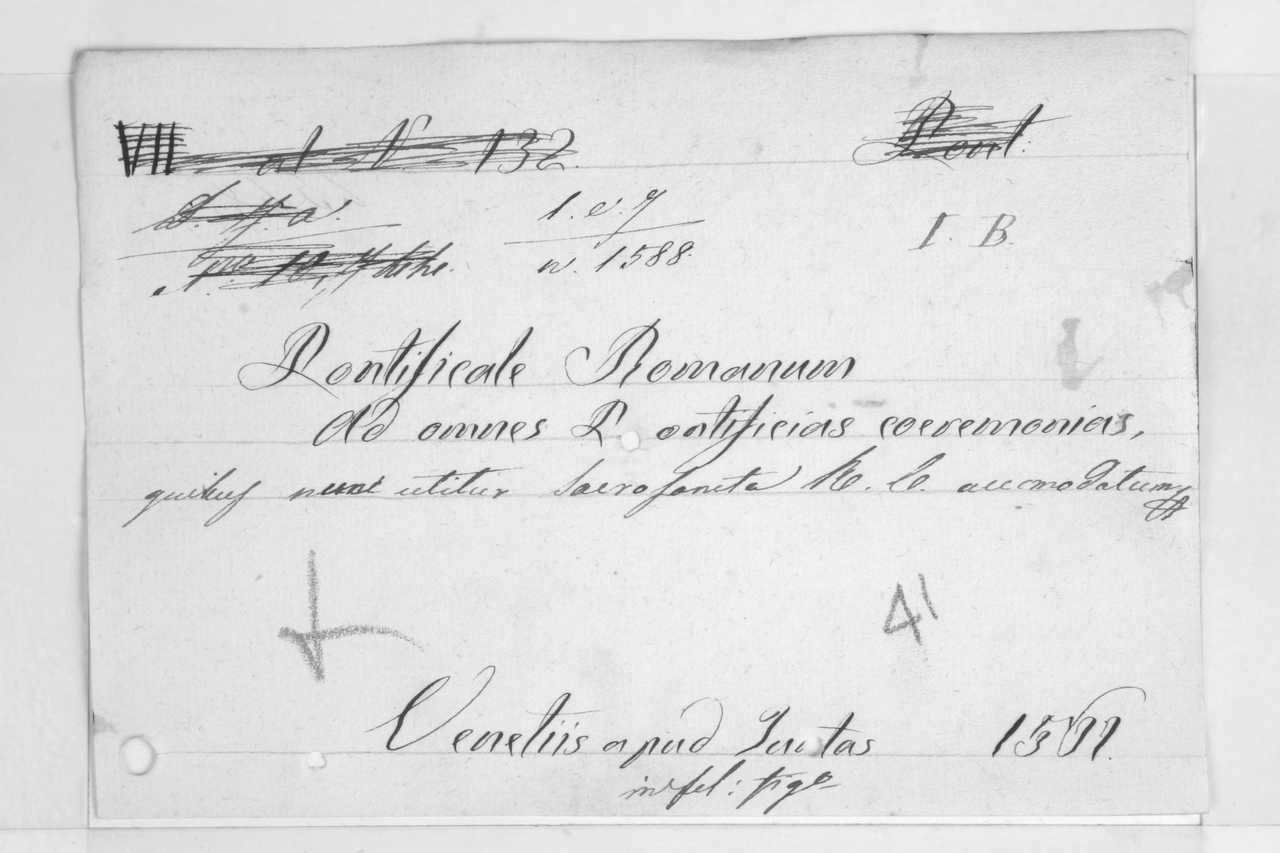 VII ad N. 132. Pont:
1. e. 7 I. B.
n. 1588.
Pontificale Romanum
Ad omnes Pontificias coeremonias,
quibus nunc utitur Sacrosancta R. E. accmodatum
41
Venetiis apud Juntas
in fol: